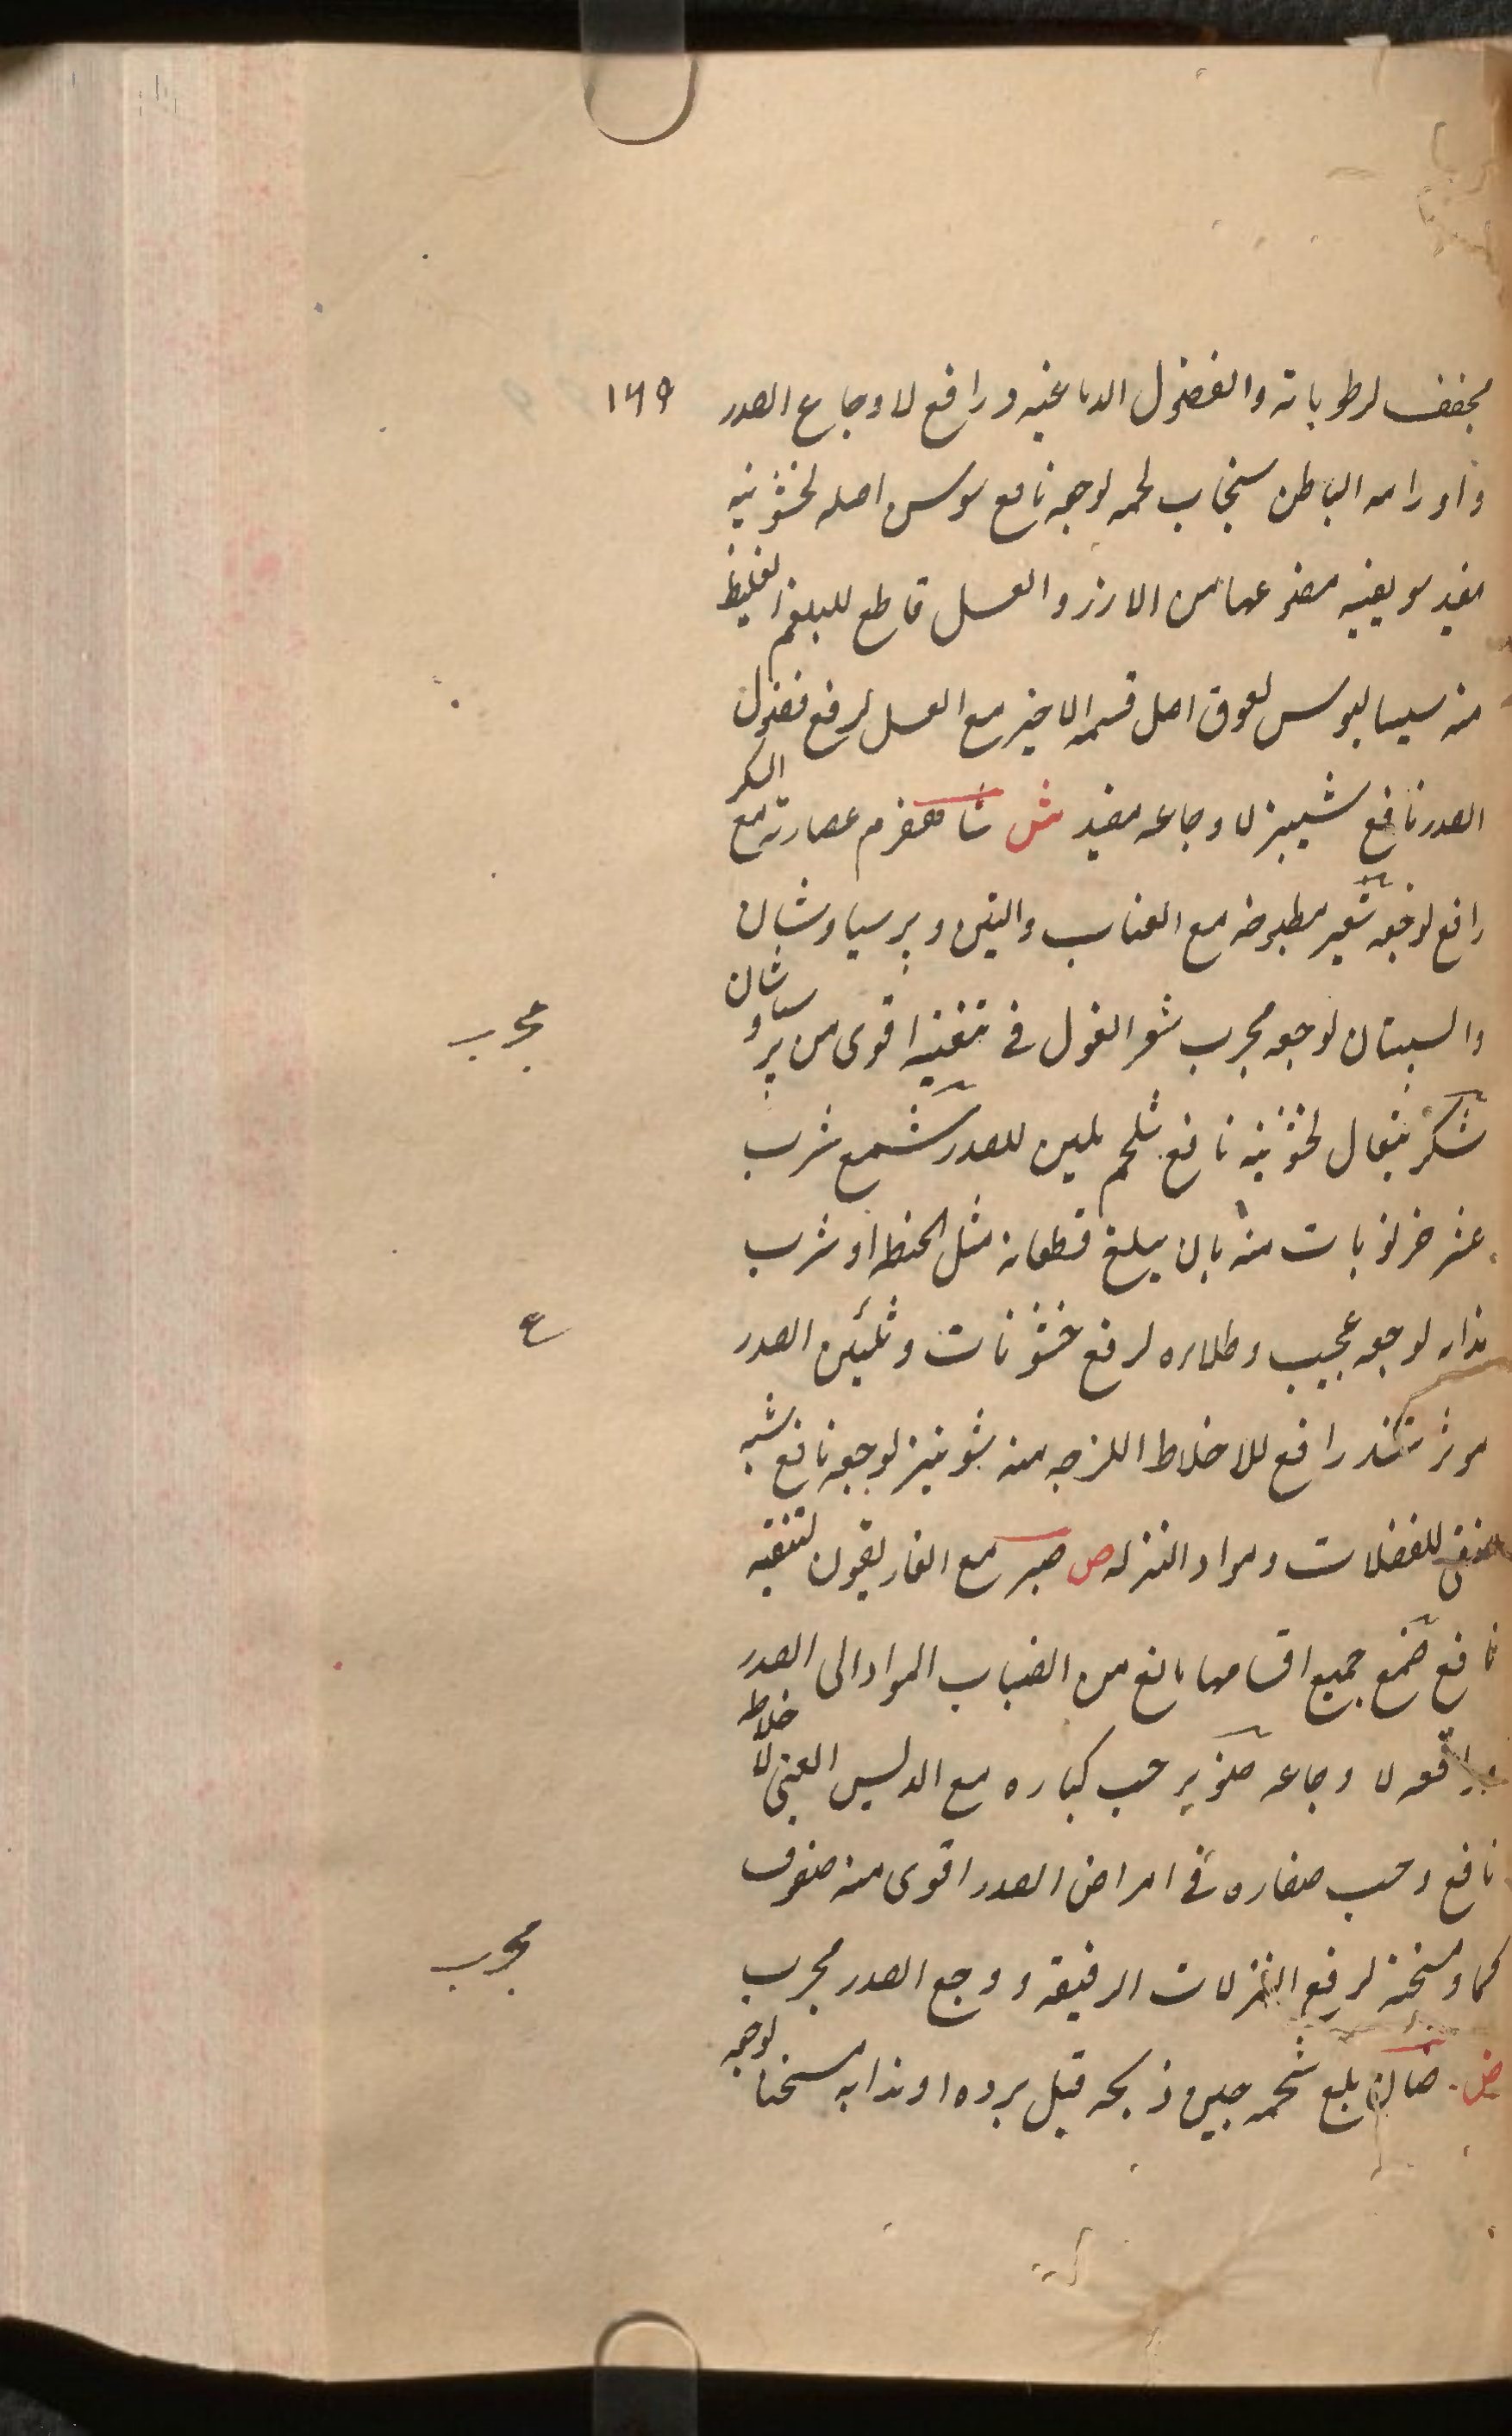 مجفف لرطوباته والفضول الدماغيه ورافع لاوجاع الصدر ١٦٩
واورامه الباطن سنجاب لحمه لوجعه نافع سوس اصله لخشونيه
مفيد سويقيه مصنوعها من الارز والعسل قاطع للبلغم الغليظ
منه سيساليوس لعوق اصل قسمه الاخير مع العسل لرفع فضول
الصدر نافع شيبز لاوجاعه مفيد ش شاهسفرم عصارته مع السكر
رافع لوجعه شعير مطبوخه مع العناب والتين وپرسياوشان
والسپستان لوجعه مجرب شعر الغول فى تنقيه اقوى من پرسياوشان
مجرب
شكر تيغال لخشونيه نافع شلجم ملين للصدر شمع شرب
عشر خرنوبات منه بان يبلغ قطعاته مثل الحنطه او شرب
مذابه لوجعه عجيب وطلاءه لرفع خشونات وتليين الصدر
ع
موثر رافع للاخلاط اللزجه منه شونيز لوجعه نافع شبه
منقى للفضلات ومواد النزله ص صبر مع الغاريقون لتنقيه
نافع صمغ جميع اقسامها مانع من انصباب المواد الى الصدر
ورافعه لاوجاعه صنوبر حب كباره مع العنبى لاخلاطه
نافع وحب صغاره فى امراض الصدر اقوى منه صوف
كماد مسخنه لرفع النزلات الرقيقه ووجع الصدر مجرب
مجرب
ض ضان بلع شحمه حين ذبحه قبل برده او مذابه مسخنا لوجعه